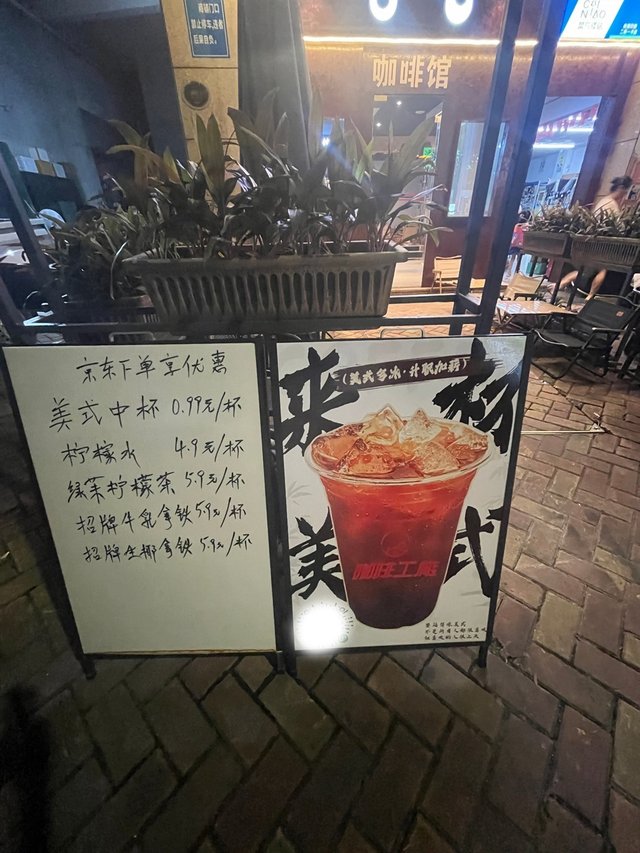 商铺门口
禁止停车,违者
后果自负
咖啡馆
京东下单享优惠
美式中杯 0.99元/杯
柠檬水 4.9元/杯
绿茉柠檬茶 5.9元/杯
招牌牛乳拿铁 5.9元/杯
招牌生椰拿铁 5.9元/杯
来杯
(美式多冰·升职加薪)
美式
咖啡工厂